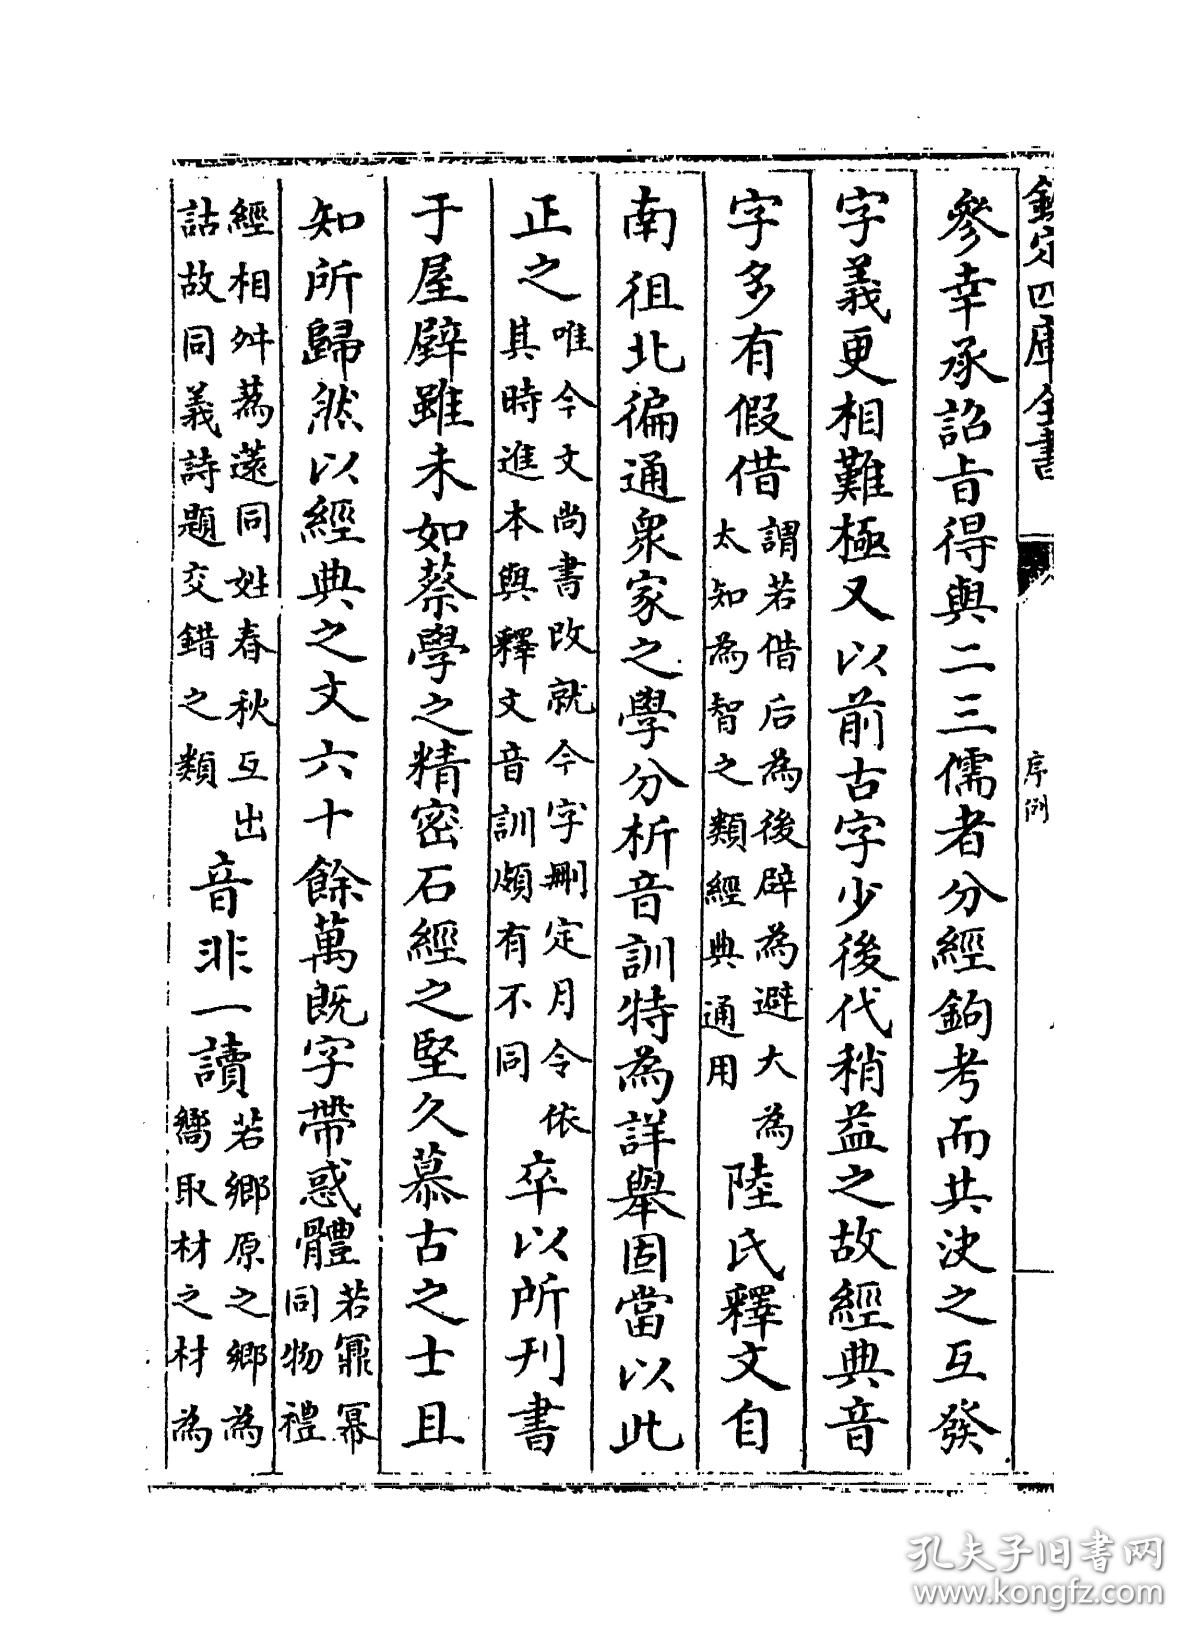 欽定四庫全書
序例
參幸承詔旨得與二三儒者分經鉤考而共決之互發
字義更相難極又以前古字少後代稍益之故經典音
字多有假借謂若借后為後辟為避大為太知為智之類經典通用陸氏釋文自
南徂北徧通衆家之學分析音訓特為詳舉固當以此
正之唯今文尚書改就今字刪定月令依其時進本與釋文音訓頗有不同卒以所刊書
于屋壁雖未如蔡學之精密石經之堅久慕古之士且
知所歸然以經典之文六十餘萬既字帶惑體若鼏冪同物禮
經相舛蒍薳同姓春秋互出詁故同義詩題交錯之類音非一讀若鄉原之鄉為嚮取材之材為
孔夫子旧书网
www.kongfz.com